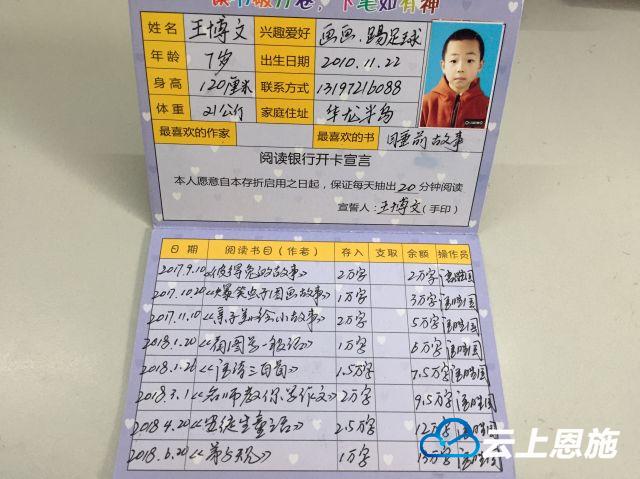 读书破万卷，下笔如有神
姓名 王博文 兴趣爱好 画画、踢足球
年龄 7岁 出生日期 2010.11.22
身高 120厘米 联系方式 13197216088
体重 21公斤 家庭住址 华龙半岛
最喜欢的作家 最喜欢的书 睡前故事
阅读银行开卡宣言
本人愿意自本存折启用之日起，保证每天抽出20分钟阅读
宣誓人：王博文(手印)
日期 阅读书目(作者) 存入 支取 余额 操作员
2017.9.10 《彼得兔的故事》 2万字 2万字
2017.10.20 《爆笑虫子图画故事》 1万字 3万字
2017.11.10 《亲子小故事》 2万字 5万字
2018.1.20 1万字 6万字
2018.1.26 《唐诗三百首》 1.5万字 7.5万字
2018.3.1 《名师教你写作文》 2万字 9.5万字
2018.4.20 《安徒生童话》 2.5万字 12万字
2018.6.20 1万字 13万字
云上恩施